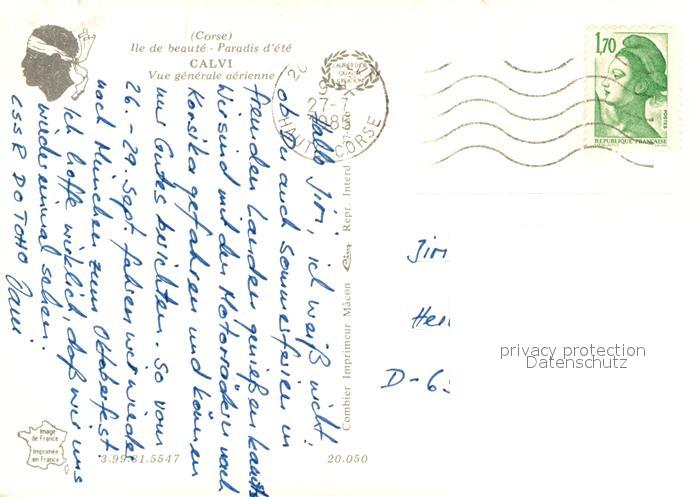 (Corse)
Ile de beauté - Paradis d'été
CALVI
Vue générale aérienne
27-7
1985
HAUTE CORSE
1,70
POSTES
REPUBLIQUE FRANÇAISE
Hallo Jiři, ich weiß nicht
ob Du auch Sommerferien in
fremden Landen genießen kannst
Wir sind mit den Motorrädern nach
Korsika gefahren und können
nur Gutes berichten. So vom
26. - 29. Sept. fahren wir wieder
nach München zum Oktoberfest
Ich hoffe wirklich, daß wir uns
wieder einmal sehen.
ČSSR DO TOHO
Combier Imprimeur Mâcon
Repr. Interd
Jiři
D-6
privacy protection
Datenschutz
Image
de France
Imprimée
en France
3.99.81.5547
20.050